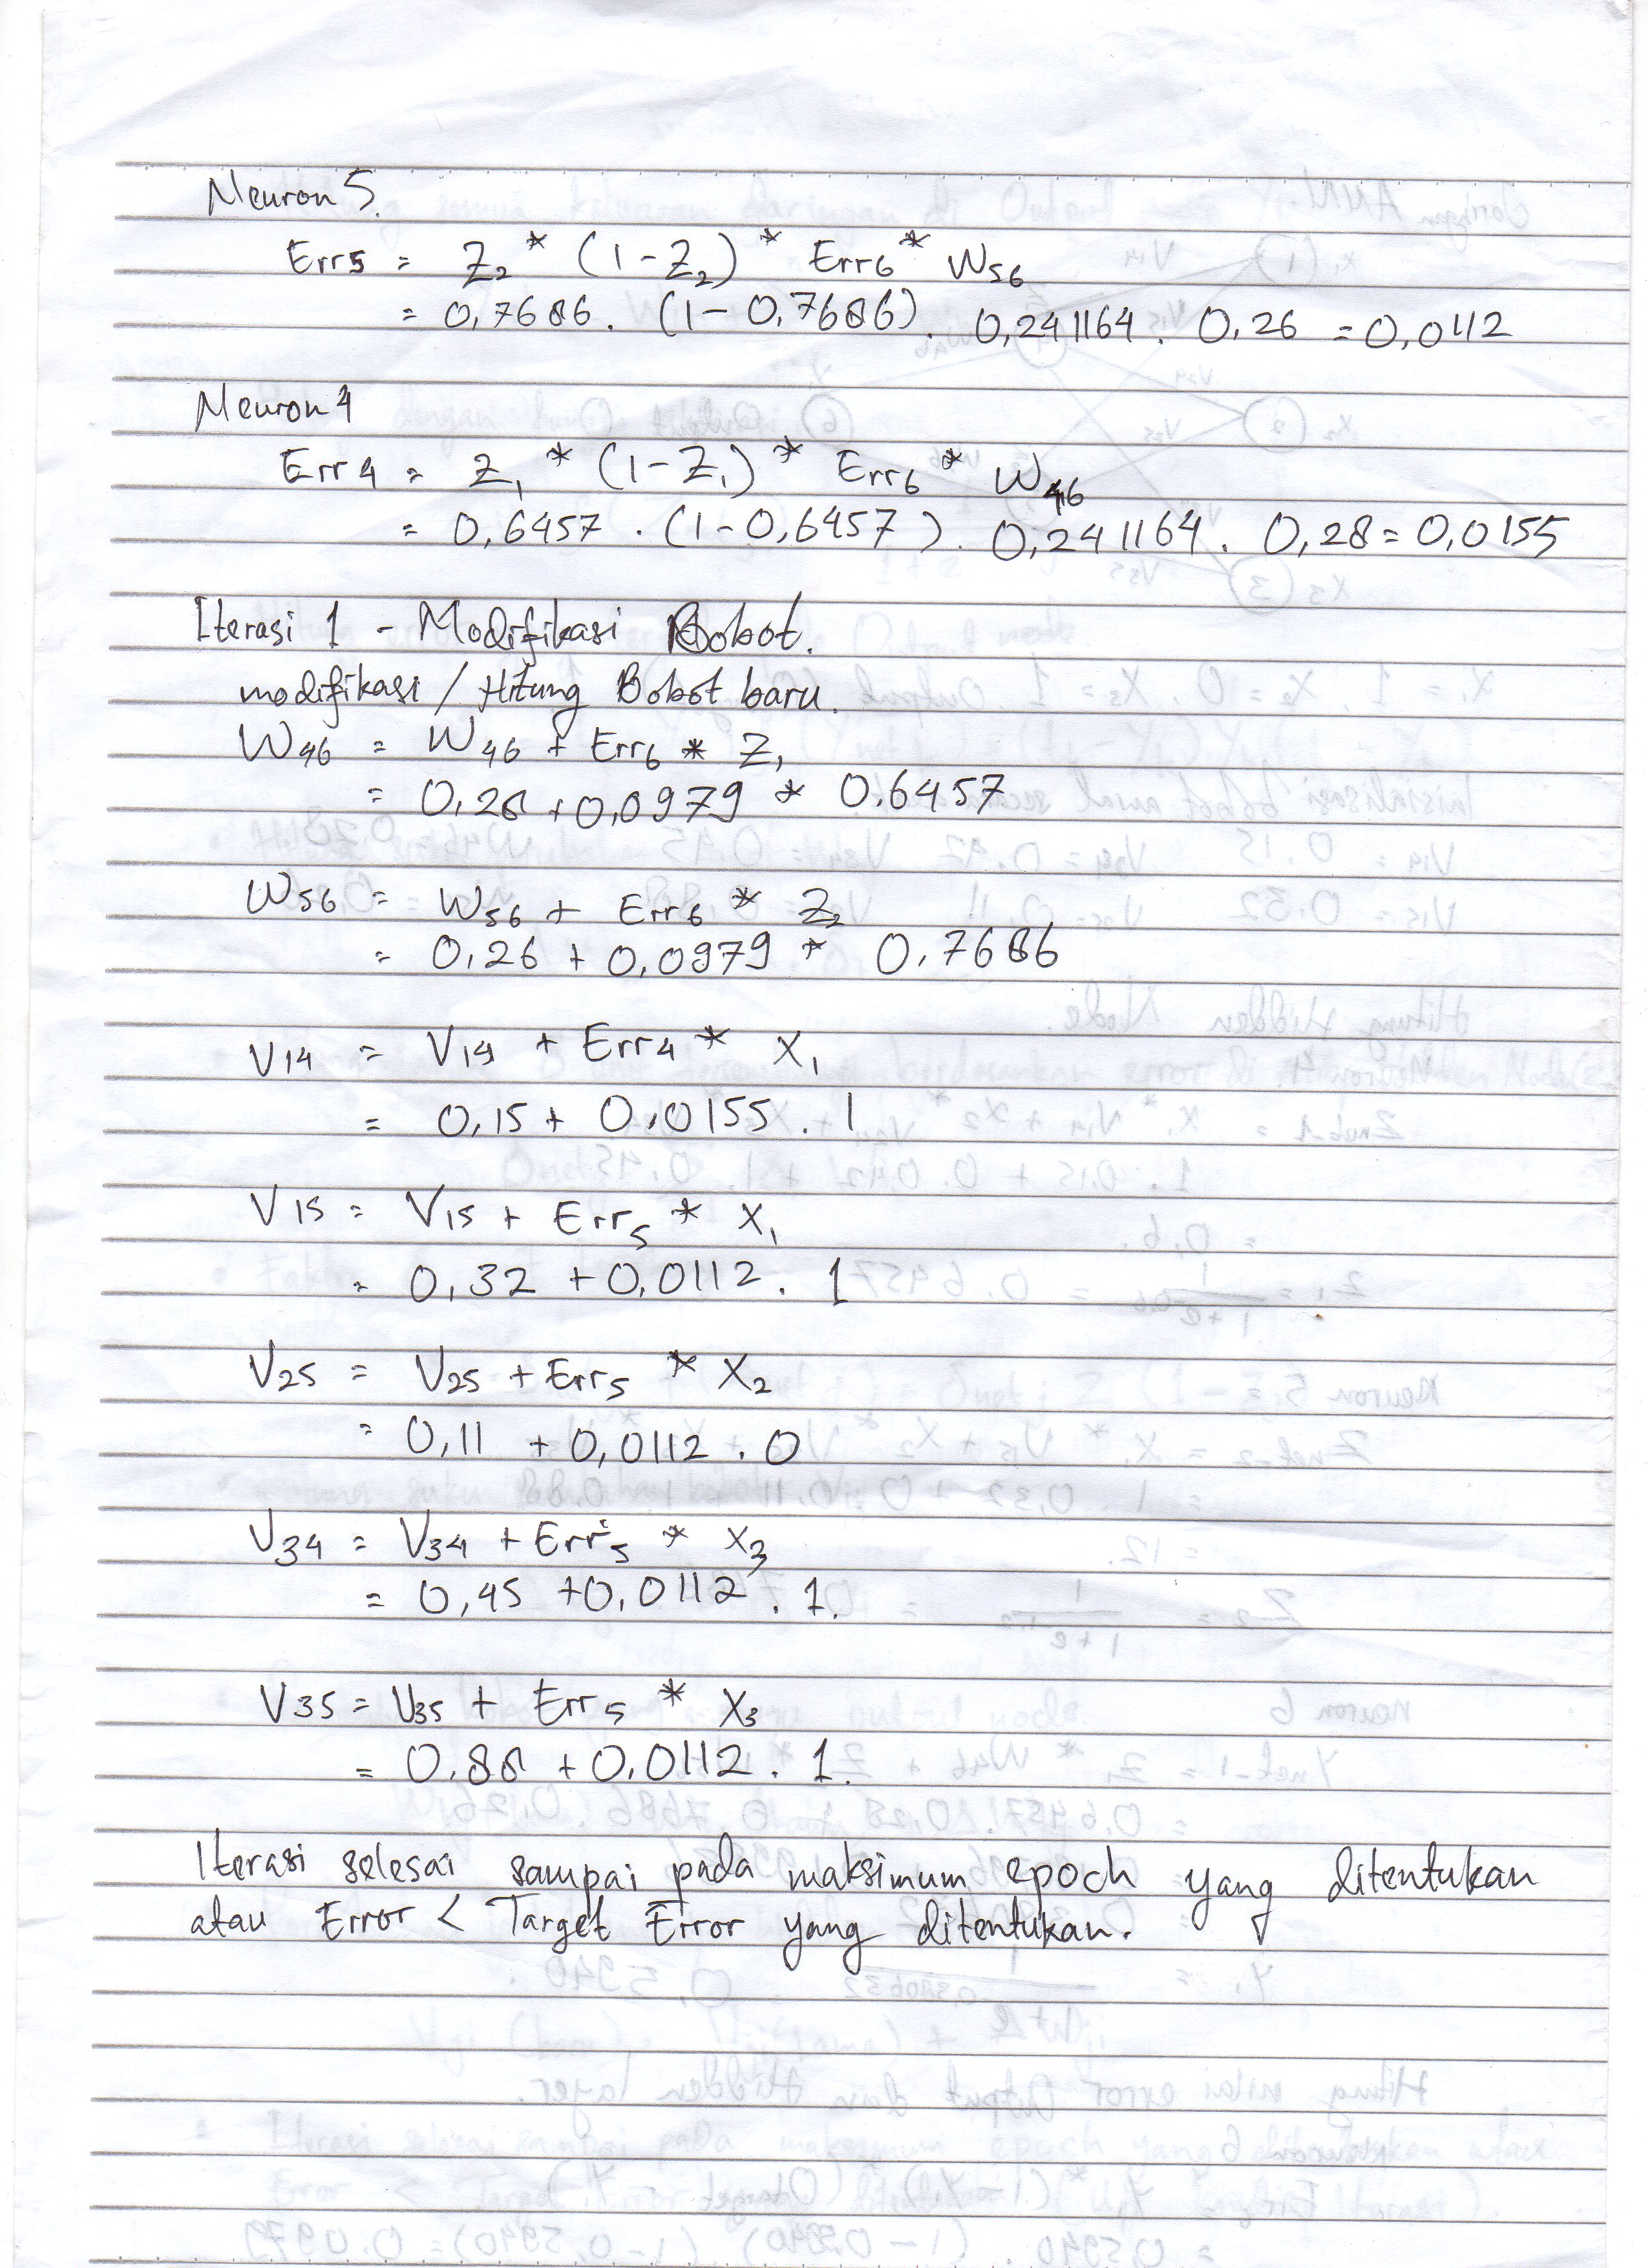 Neuron 5.
Err5 = Z2 * (1-Z2) * Err6 * W56
= 0,7686 . (1-0,7686) . 0,241164 . 0,26 = 0,0112
Neuron 4
Err4 = Z1 * (1-Z1) * Err6 * W46
= 0,6457 . (1-0,6457) . 0,241164 . 0,28 = 0,0155
Iterasi 1 - Modifikasi Bobot.
modifikasi / Hitung Bobot baru.
W46 = W46 + Err6 * Z1
= 0,28 + 0,0979 * 0.6457
W56 = W56 + Err6 * Z2
= 0,26 + 0,0979 * 0,7686
V14 = V14 + Err4 * X1
= 0,15 + 0,0155 . 1
V15 = V15 + Err5 * X1
= 0,32 + 0,0112 . 1
V25 = V25 + Err5 * X2
= 0,11 + 0,0112 . 0
V34 = V34 + Err5 * X3
= 0,45 + 0,0112 . 1.
V35 = V35 + Err5 * X3
= 0.88 + 0,0112 . 1.
Iterasi selesai sampai pada maksimum epoch yang ditentukan
atau Error < Target Error yang ditentukan.